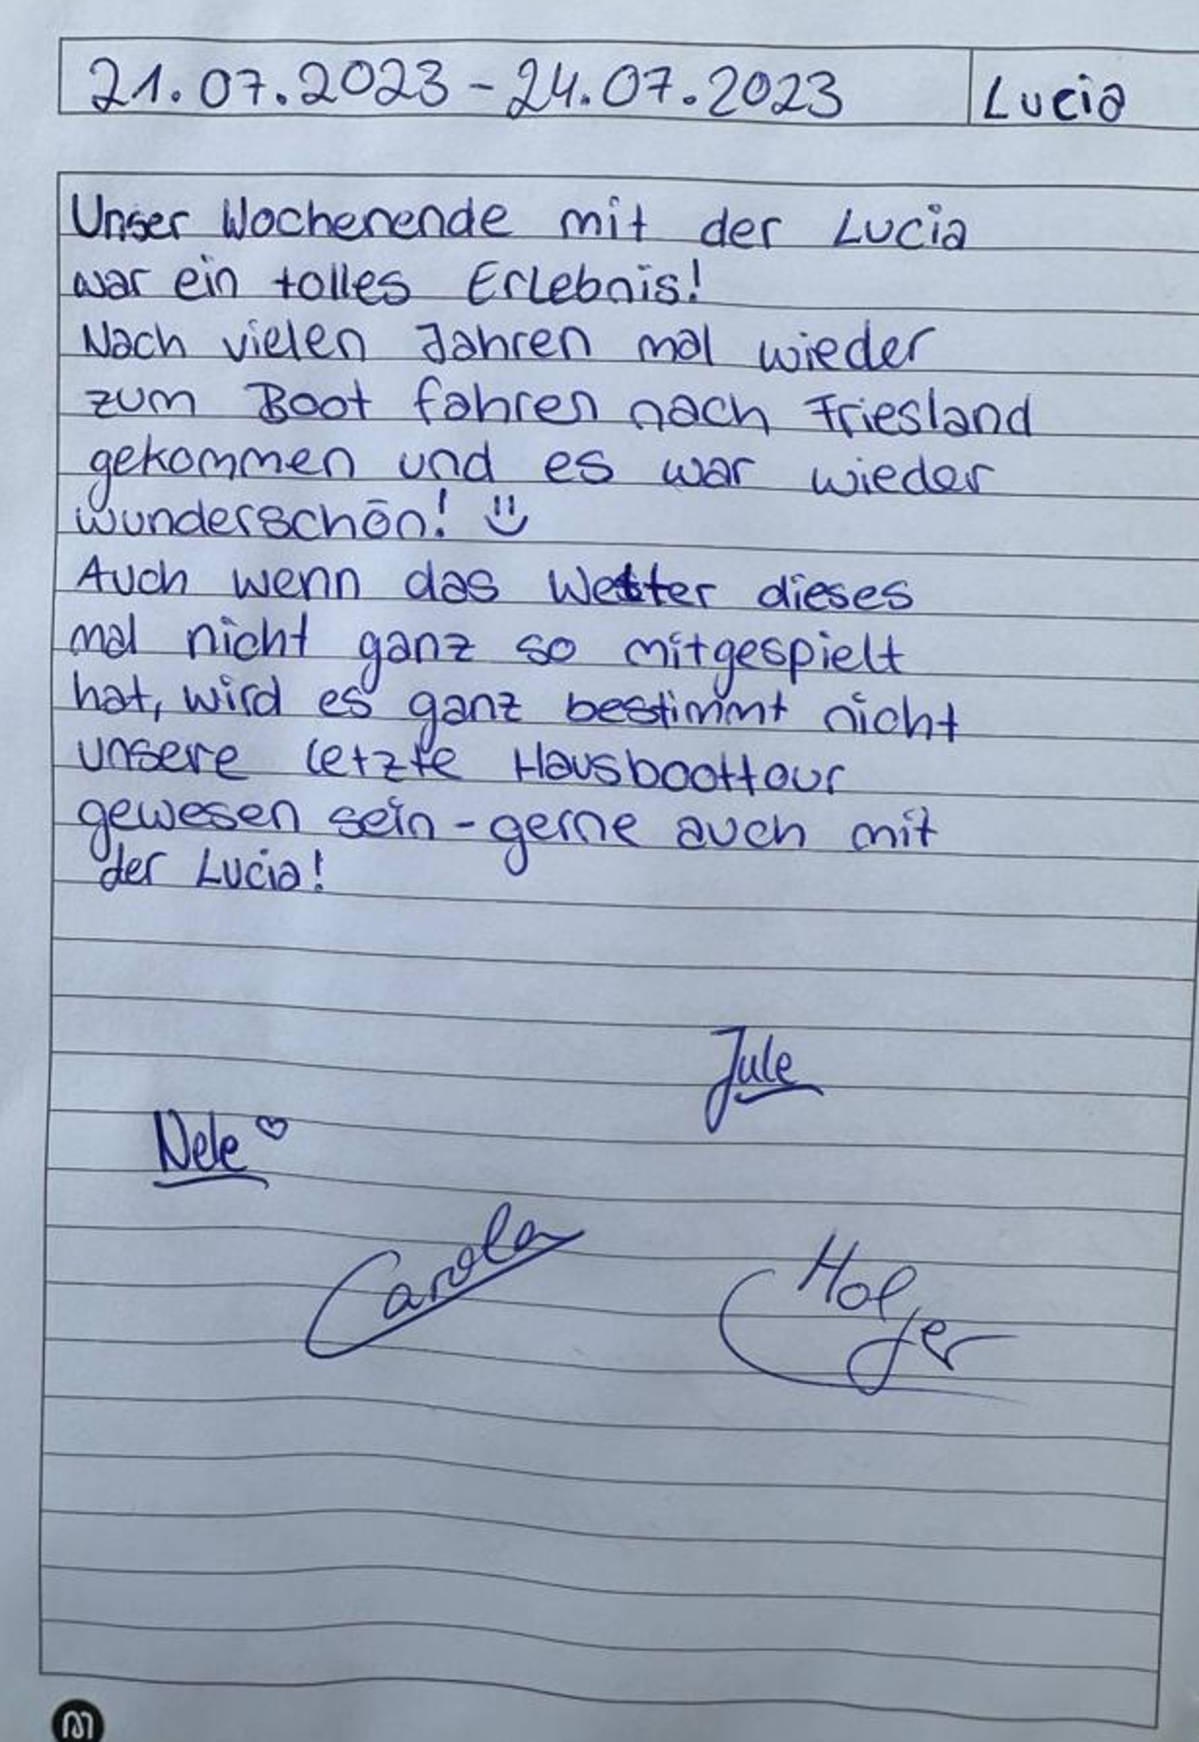 21.07.2023 - 24.07.2023 Lucia
Unser Wochenende mit der Lucia
war ein tolles Erlebnis!
Nach vielen Jahren mal wieder
zum Boot fahren nach Friesland
gekommen und es war wieder
wunderschön! :)
Auch wenn das Wetter dieses
mal nicht ganz so mitgespielt
hat, wird es ganz bestimmt nicht
unsere letzte Hausboottour
gewesen sein - gerne auch mit
der Lucia!
Jule
Nele ♡
Carola
Holger